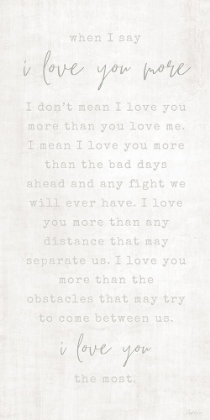 when I say
i love you more
I don't mean I love you
more than you love me.
I mean I love you more
than the bad days
ahead and any fight we
will ever have. I love
you more than any
distance that may
separate us. I love you
more than the
obstacles that may try
to come between us.
i love you
the most.